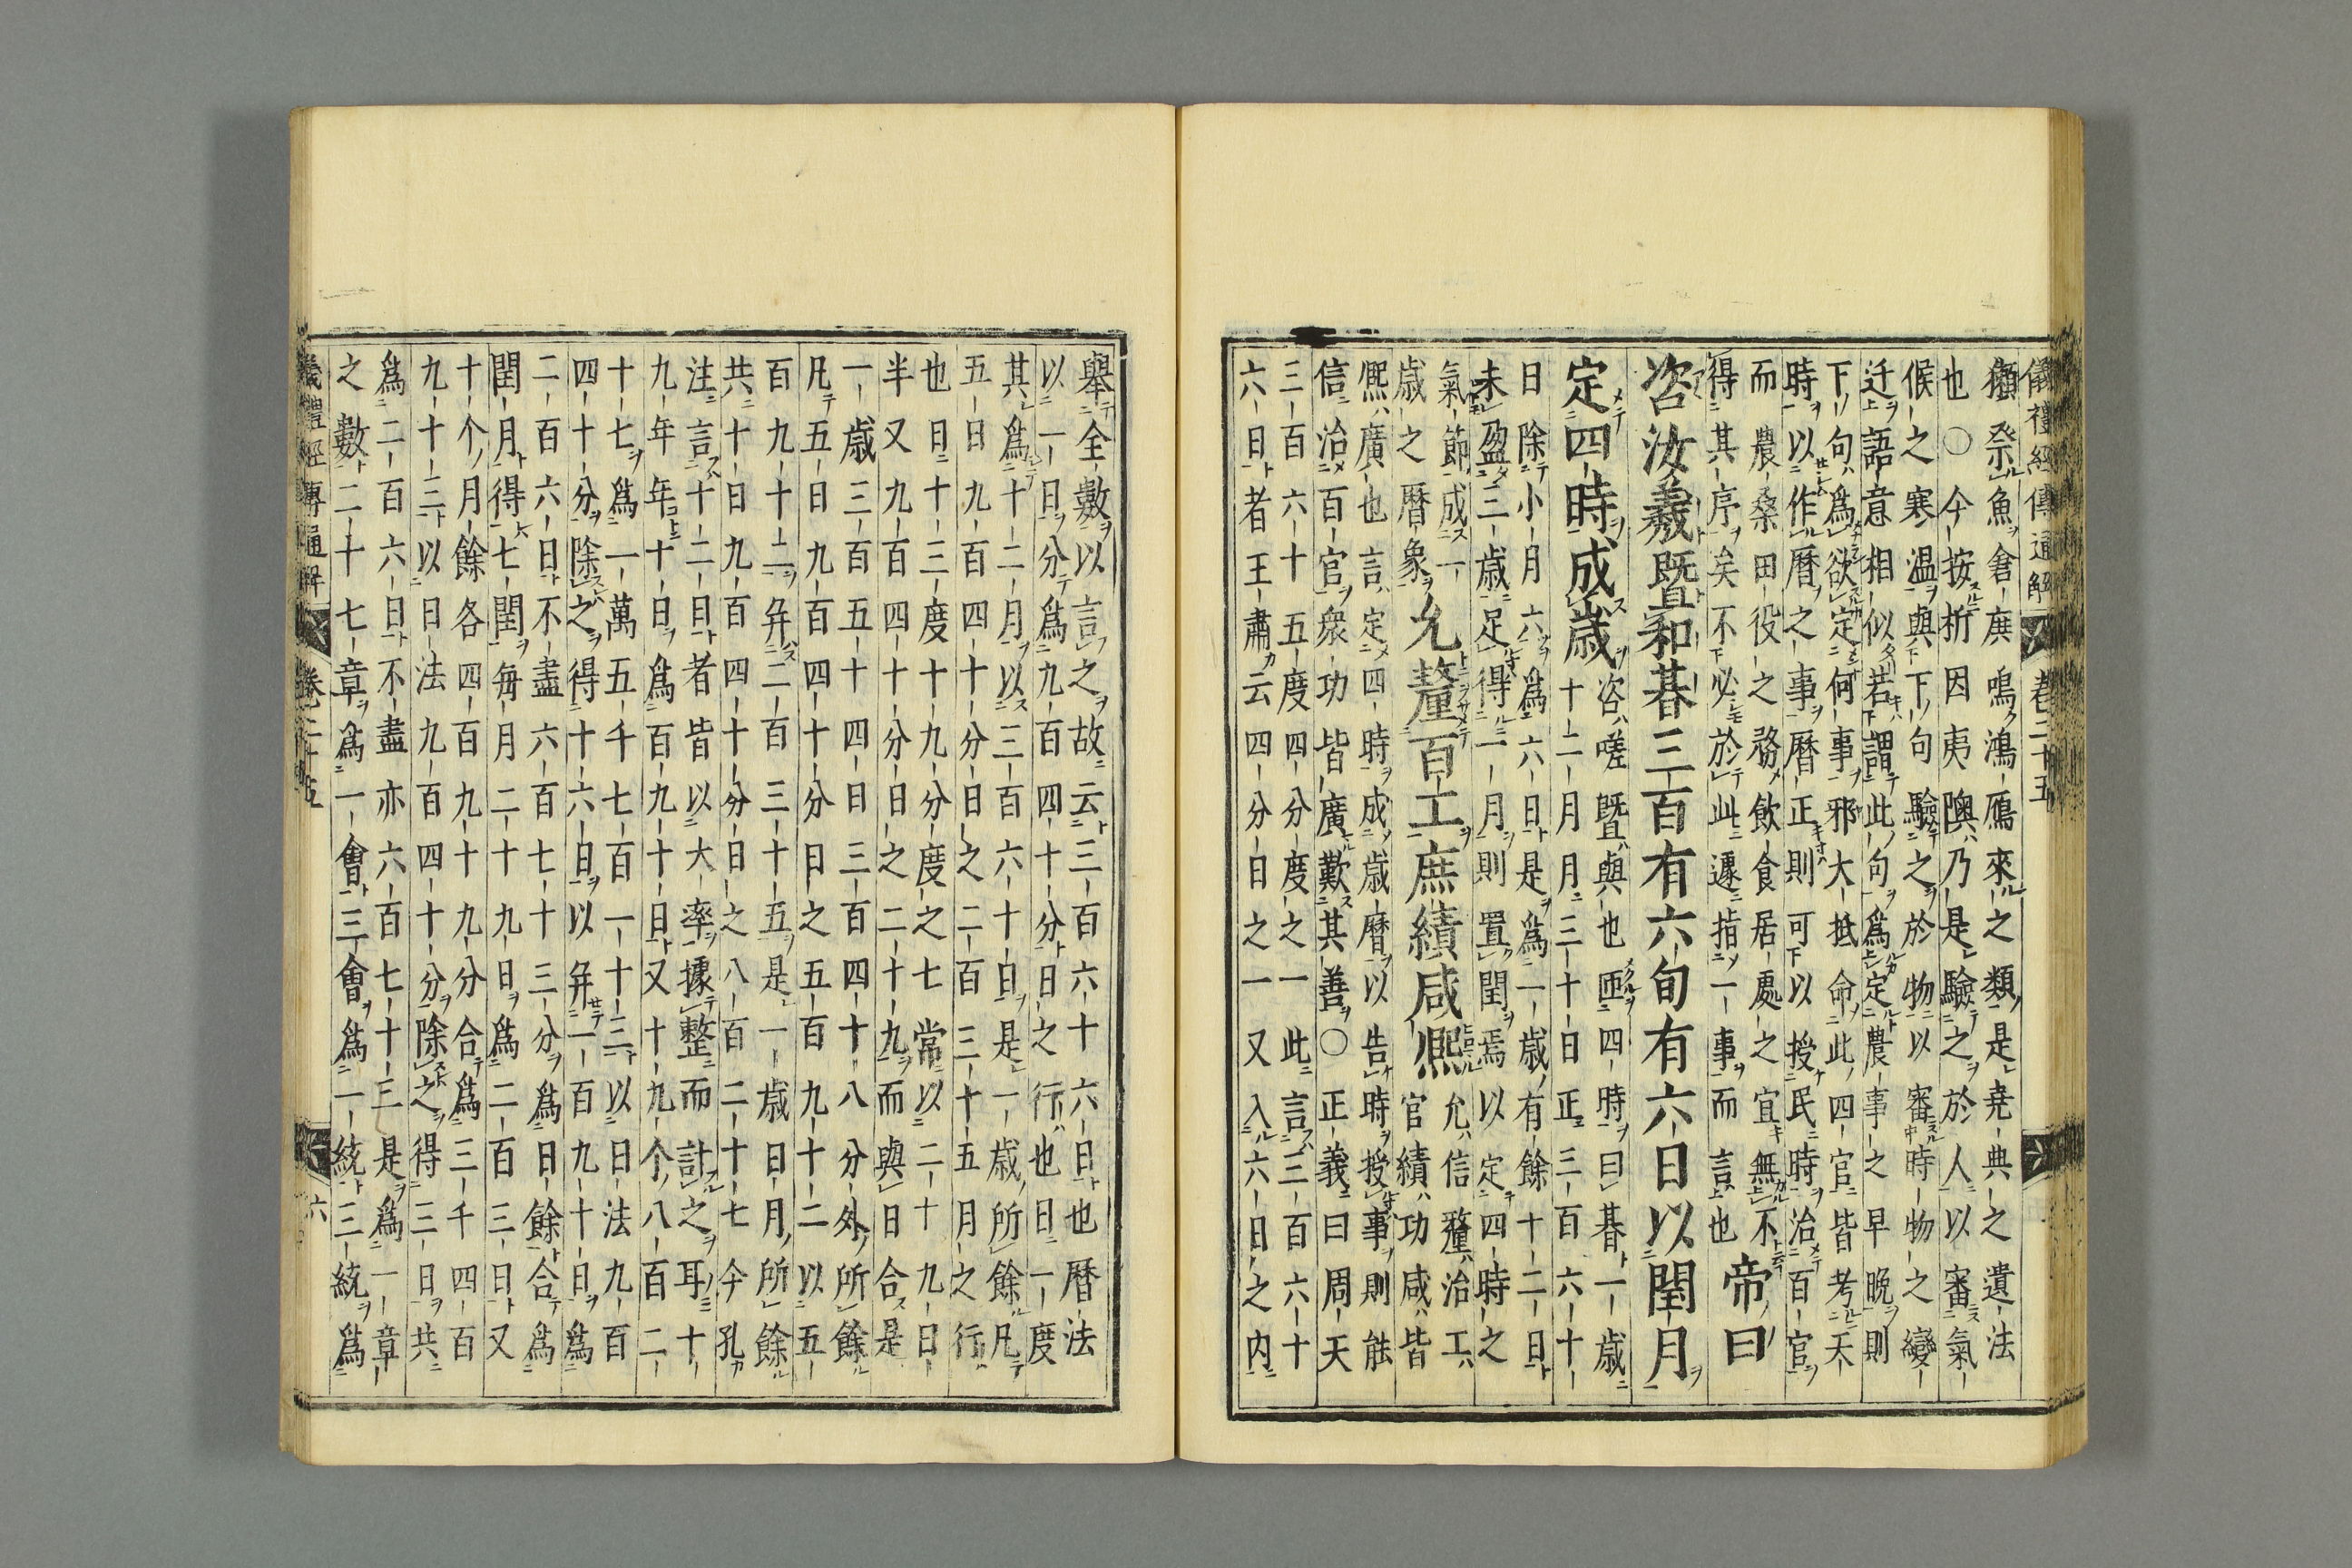 儀禮經傳通解 卷二十五
獺祭魚倉庚鳴鴻鴈來之類是堯典之遺法
也〇今按析因夷隩乃是驗之於人以審氣
候之寒温與下句驗之於物以審時物之變
迂語意相似若謂此句爲定農事之早晩則
下句爲欲定何事邪大抵命此四官皆考天
時以作曆之事曆正則可以授民時治百官
而農桑田役之務飲食居處之宜無不
得其序矣不必於此遽指一事而言也
帝曰
咨汝羲暨和朞三百有六旬有六日以閏月
定四時成歲
咨嗟暨與也匝四時曰朞一歲
十二月月三十日正三百六十
日除小月六爲六日是爲一歲有餘十二日
未盈三歲足得一月則置閏焉以定四時之
氣節成一
歲之曆象
允釐百工庶績咸熙
允信釐治工
官績功咸皆
熙廣也言定四時成歲曆以告時授事則能
信治百官衆功皆廣歎其善〇正義曰周天
三百六十五度四分度之一此言三百六十
六日者王肅云四分日之一又入六日之内
擧全數以言之故云三百六十六日也曆法
以一日分爲九百四十分日之行也日一度
其爲十二月以三百六十日是一歲所餘凡
五日九百四十分日之二百三十五月之行
也日十三度十九分度之七常以二十九日
半又九百四十分日之二十九而與日合是
一歲三百五十四日三百四十八分外所餘
凡五日九百四十分日之五百九十二以五
百九十二弁二百三十五是一歲日月所餘
共十日九百四十分日之八百二十七今孔
注言十二日者皆以大率據整而計之耳十
九年年十日爲百九十日又十九个八百二
十七爲一萬五千七百一十三以日法九百
四十分除之得十六日以弁一百九十日爲
二百六日不盡六百七十三分爲日餘合爲
閏月得七閏毎月二十九日爲二百三日又
十个月餘各四百九十九分合爲三千四百
九十三以日法九百四十分除之得三日共
爲二百六日不盡亦六百七十三是爲一章
之數二十七章爲一會三會爲一統三統爲
儀禮經傳通解 卷二十五 六